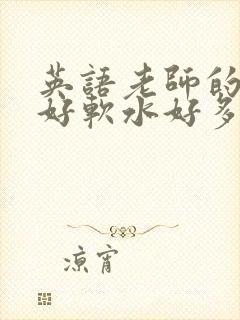 英語老師的
好軟水好多
涼宵